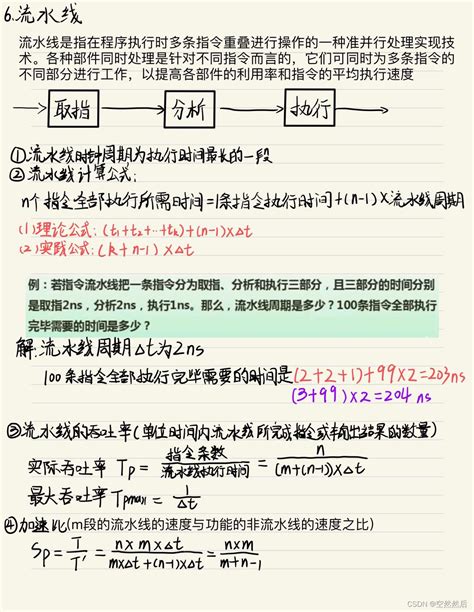 6.流水线
流水线是指在程序执行时多条指令重叠进行操作的一种准并行处理实现技
术。各种部件同时处理是针对不同指令而言的,它们可同时为多条指令的
不同部分进行工作,以提高各部件的利用率和指令的平均执行速度
取指 分析 执行
①流水线时钟周期为执行时间最长的一段
②流水线计算公式:
n个指令全部执行所需时间=1条指令执行时间+(n-1)×流水线周期
(1)理论公式:(t₁+t₂+…+tₖ)+(n-1)×Δt
(2)实践公式:(k+n-1)×Δt
例:若指令流水线把一条指令分为取指、分析和执行三部分,且三部分的时间分别
是取指2ns,分析2ns,执行1ns。那么,流水线周期是多少?100条指令全部执行
完毕需要的时间是多少?
解:流水线周期Δt为2ns
100条指令全部执行完毕需要的时间是(2+2+1)+99×2=203ns
(3+99)×2=204 ns
③流水线的吞吐率(单位时间内流水线所完成指令或输出结果的数量)
实际吞吐率 Tp=指令条数/流水线执行时间=n/(m+(n-1))×Δt
最大吞吐率 Tpmax=1/Δt
④加速比(m段的流水线的速度与功能的非流水线的速度之比)
Sp=T/T'=n×m×Δt/m×Δt+(n-1)×Δt=n×m/m+n-1
CSDN @空然然后